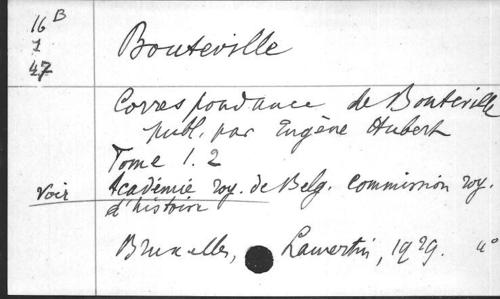 16 B
1
47
Bouteville
Correspondance de Bouteville
publ. par Eugène Hubert
Tome 1. 2
voir Académie roy. de Belg. Commission roy.
d'histoire
Bruxelles, Lamertin, 1929. 4°